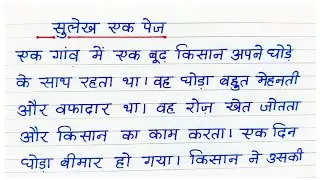 सुलेख एक पेज
एक गांव में एक बूढ़ किसान अपने घोड़े
के साथ रहता था। वह घोड़ा बहुत मेहनती
और वफादार था। वह रोज़ खेत जोतता
और किसान का काम करता। एक दिन
घोड़ा बीमार हो गया। किसान ने उसकी